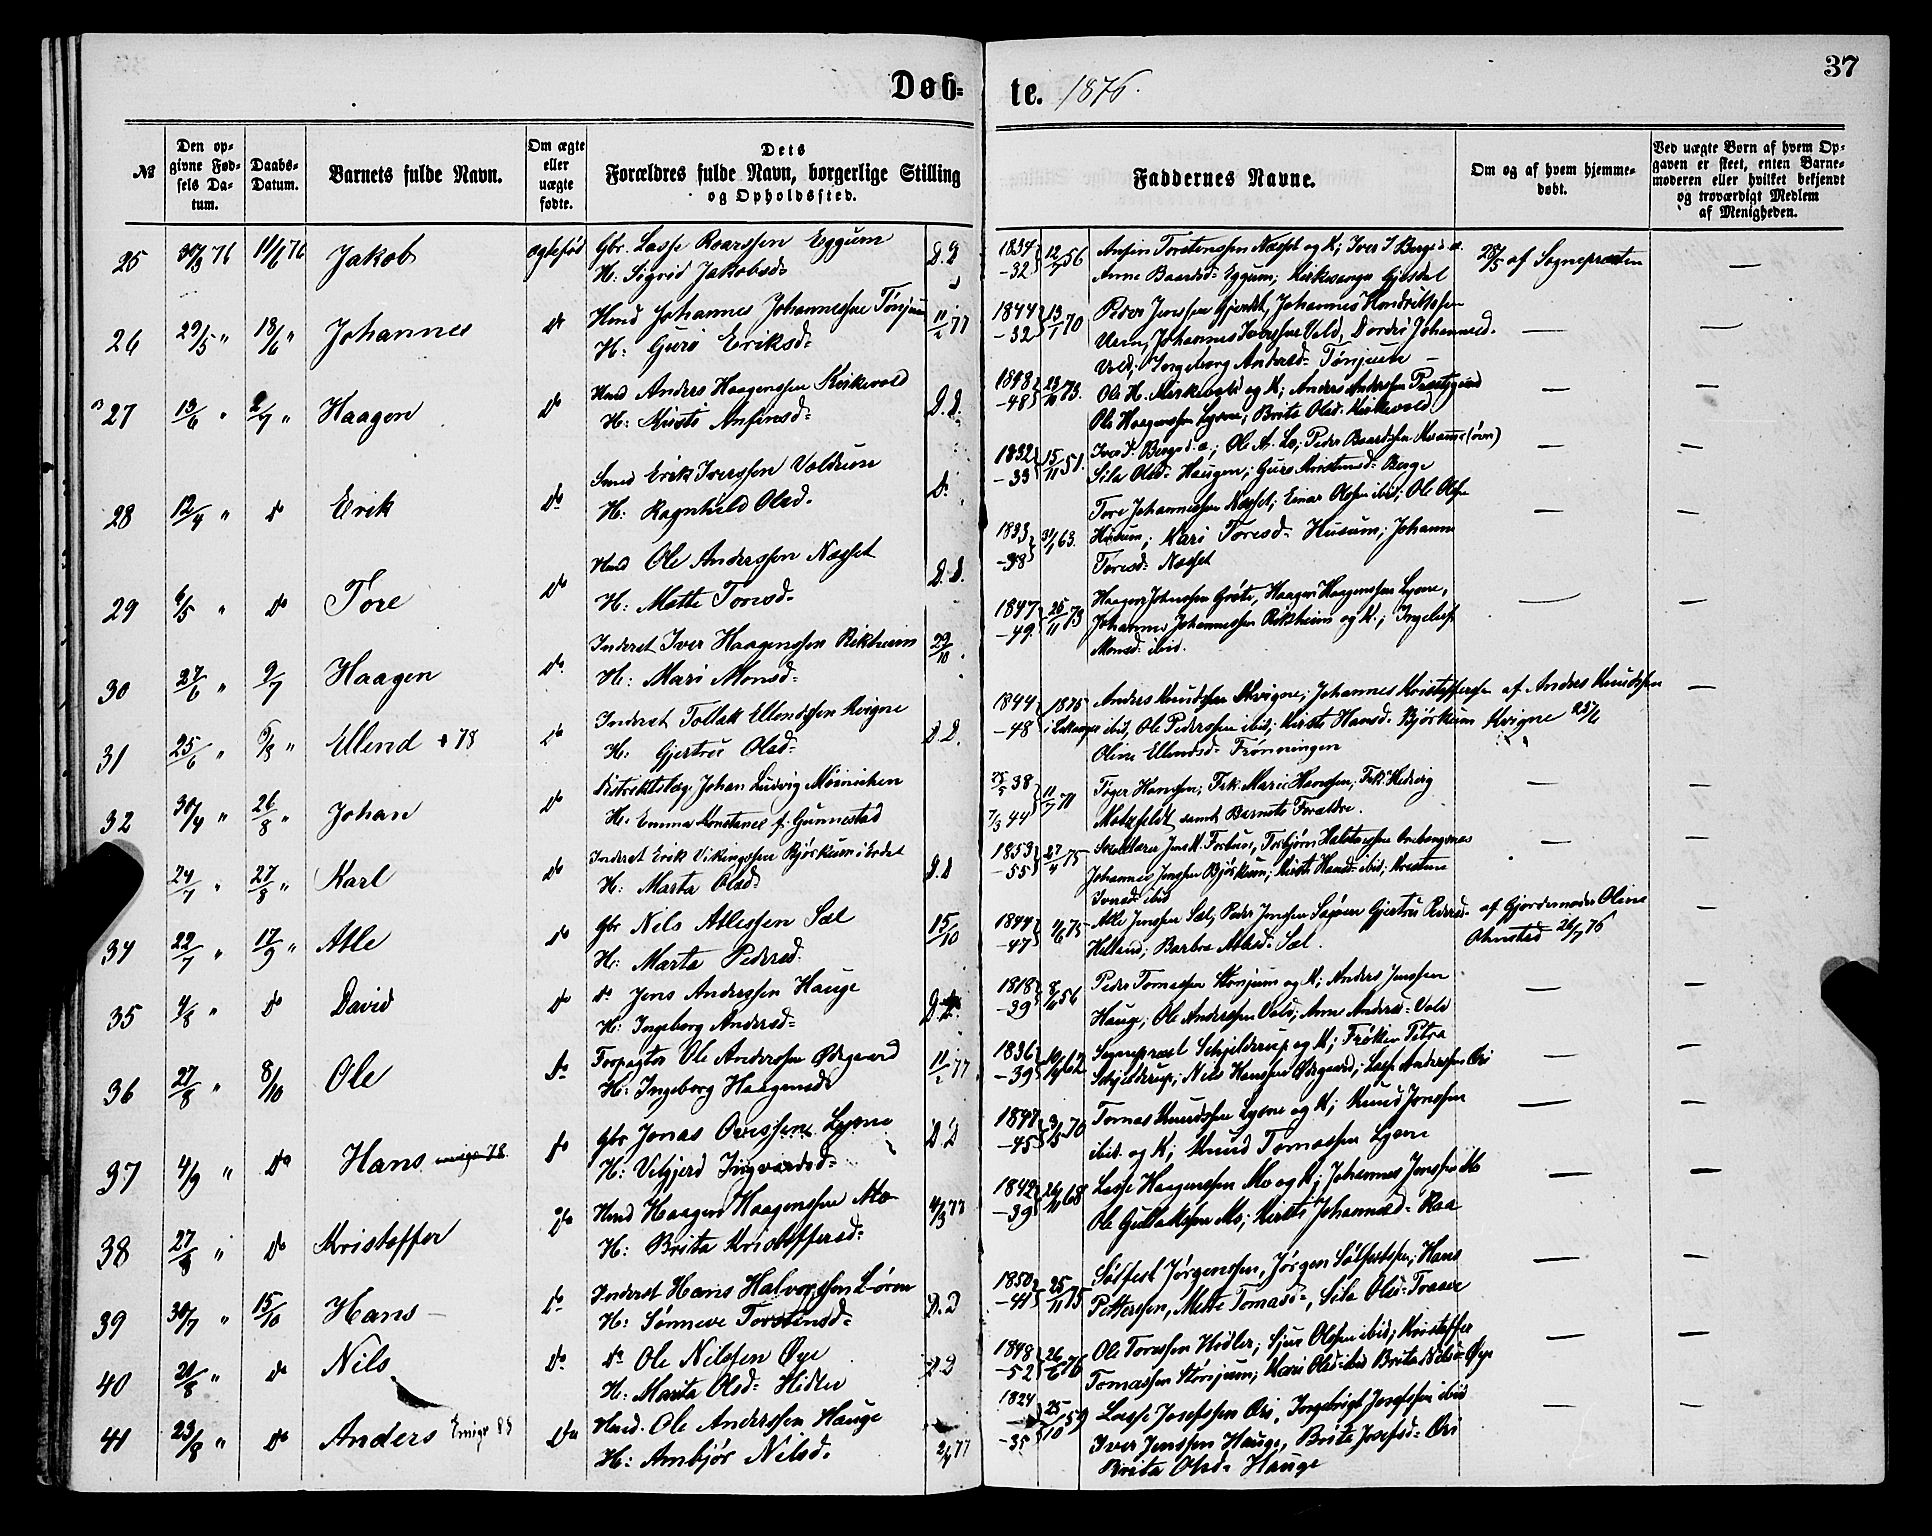 37
Døb-
te. 1876.
№
Den op-
givne Fød-
sels Da-
tum.
Daabs-
Datum.
Barnets fulde Navn.
Om ægte
eller
uægte
fødte.
Dets
Forældres fulde Navn, borgerlige Stilling
og Opholdssted.
Faddernes Navne.
Om og af hvem hjemme-
døbt.
Ved uægte Børn af hvem Op-
gaven er skeet, enten Barne-
moderen eller hvilket bekjendt
og troværdigt Medlem
af Menigheden.
25 30/5 76 11/6 76 Jakob ægtefød Gbr. Lasse Roarssen Eggum D.D
H: Sigrid Jakobsd=
1834 12/7 56 Anfin Torstenssen Næsset og K; Iver I Berge
-32 Anne Baardsd= Eggum;
28/5 af Sognepræsten
26 29/5 " 18/6 " Johannes do Hmd Johannes Johannessen Tønjum 11/2 77
H: Guri Eriksd=
1844 13/1 70 Peder Jenssen Gjerdet, Johannes Hendrikssen
-32 Johannes Iverssen Vold, Dordei Johannesd.
Vold; Ingeborg Andersd= Tønjum
27 13/6 " 2/7 " Haagen do Hmd Anders Haagenssen Kirkevold D.D.
H: Kristi Anfinsd=
1848 23/11 73. Ole H. Kirkevold og K; Anders Anderssen Prestegaard
-48 Ole Haagenssen Lysne; Brita Olsd. Kirkevold
28 12/4 " do Erik do Smed Erik Iverssen Voldum D.
H: Ragnhild Olsd.
1832 15/11 51. Peder Baardssen
-33 Sila Olsd= Haugen; Guro Berge
29 6/5 " do Tore do Hmd Ole Anderssen Næsset D.D.
H: Mette Toresd=
1833 31/1 63. Tore Johannessen Næsset; Einar Olssen ibid; Ole Olsen
-38 Husum; Kari Toresd= Husum; Johanne
Toresd= Næsset
30 27/6 " 2/7 Haagen do Inderst Iver Haagenssen Rikheim 29/10
H: Mari Monsd=
1847 25/11 73 Haagen Johnssen Grøte, Haagen Haagenssen Lysne,
-49. Johannes Johannessen Rikheim og K.; Ingeleif
Monsd= ibid.
31 25/6 " 6/8 " Ellend + 78 do Inderst Tollak Ellendssen Kvigne D.D.
H: Gjertrud Olsd=
1844 1875 Anders Knudssen Kvigne; Johannes Kristofferssen
-48 ibid, Ole Pederssen ibid; Kirsti Hansd= Bjørkum
Oline Ellendsd= Frønningen
af Anders Knudssen
Kvigne 25/6
32 30/4 " 26/8 " Johan do Distriktslæge Johan Ludvig Moinichen
H: Emma Konstance f. Gunnestad
25/5 38 11/7 71 Foged Hanssen; Frk. Marie Hanssen; Frk. Hedevig
7/3 44 Motzfeldt samt Barnets Forældre.
24/7 " 27/8 " Karl do Inderst Erik Vikingssen Bjørkum i Erdal D.D
H: Marta Olsd.
1853 27/4 75 Skolelærer Jens K. Fortun, Torbjørn
-55 Johannes Jenssen Bjørkum; Kirsti Hansd= ibid;
ibid
34 22/7 " 17/9 " Atle do Gbr Nils Atlessen Sæl 15/10
H: Marta Pedersd.
1844 4/6 75 Atle Jenssen Sæl; Peder Jenssen Gjertrud Pedersd.
-47 Helland; Barbra Atlesd= Sæl.
af Gjordemoder Oline
Ohnstad 26/7 76
35 4/8 " do David do do Jens Anderssen Hauge
H: Ingeborg Andersd=
1818 8/11 56 Peder Tomassen Stønjum og K; Anders Jenssen
-39 Hauge; Ole Anderssen Vold; Anne Andersd= Vold
36 27/8 " 8/10 Ole do Forpagter Ole Anderssen Ødegaard 11/2 77
H: Ingeborg Haagensd=
1836 62 Sognepræst Schjelderup og K; Frøken Petra
-39 Schjelderup; Nils Hanssen Ødegaard; Lasse Anderssen Øri
37 4/9 " do Hans do Gbr Jonas Ovessen Lysne D.D
H: Vibjerd Ingvardsd=
1847 3/5 70 Tomas Knudssen Lysne og K; Knud Jonssen
-45 ibid og K; Knud Tomassen Lysne
38 27/8 " do Kristoffer do Hmd Haagen Haagenssen Mo 4/3 77
H: Brita Kristoffersd=
1842 26/11 68 Lasse Haagenssen Mo og K; Johannes Jenssen Mo
-39 Ole Gullakssen Mo; Kirsti Johannesd= Raa
39 30/7 " 15/10 Hans do Inderst Hans Halvorssen D.D
H: Sønneve Torstensd=
1850 25/11 75 Sølfest Jørgenssen, Jørgen Sølfestssen; Hans
-41 Petterssen, Mette Tomasd=, Sila Olsd=
40 20/8 " do Nils do do Ole Nilssen Øye D.D
H: Marita Olsd= Hidler
1848 26/6 76 Ole Toressen Hidler; Sjur Olssen ibid; Kristoffer
-52 Tomassen Stønjum; Kari Olsd= ibid Brita Nilsd= Øye
41 23/8 " do Anders Emigr 83 do Hmd. Ole Anderssen Hauge 2/4 77
H: Ambjør Nilsd=
1824 25/10 59 Lasse Josefssen Øri, Ingebrigt Josefssen ibid
-35 Iver Jenssen Hauge, Brita Josefsd= Øri
Brita Olsd= Hauge